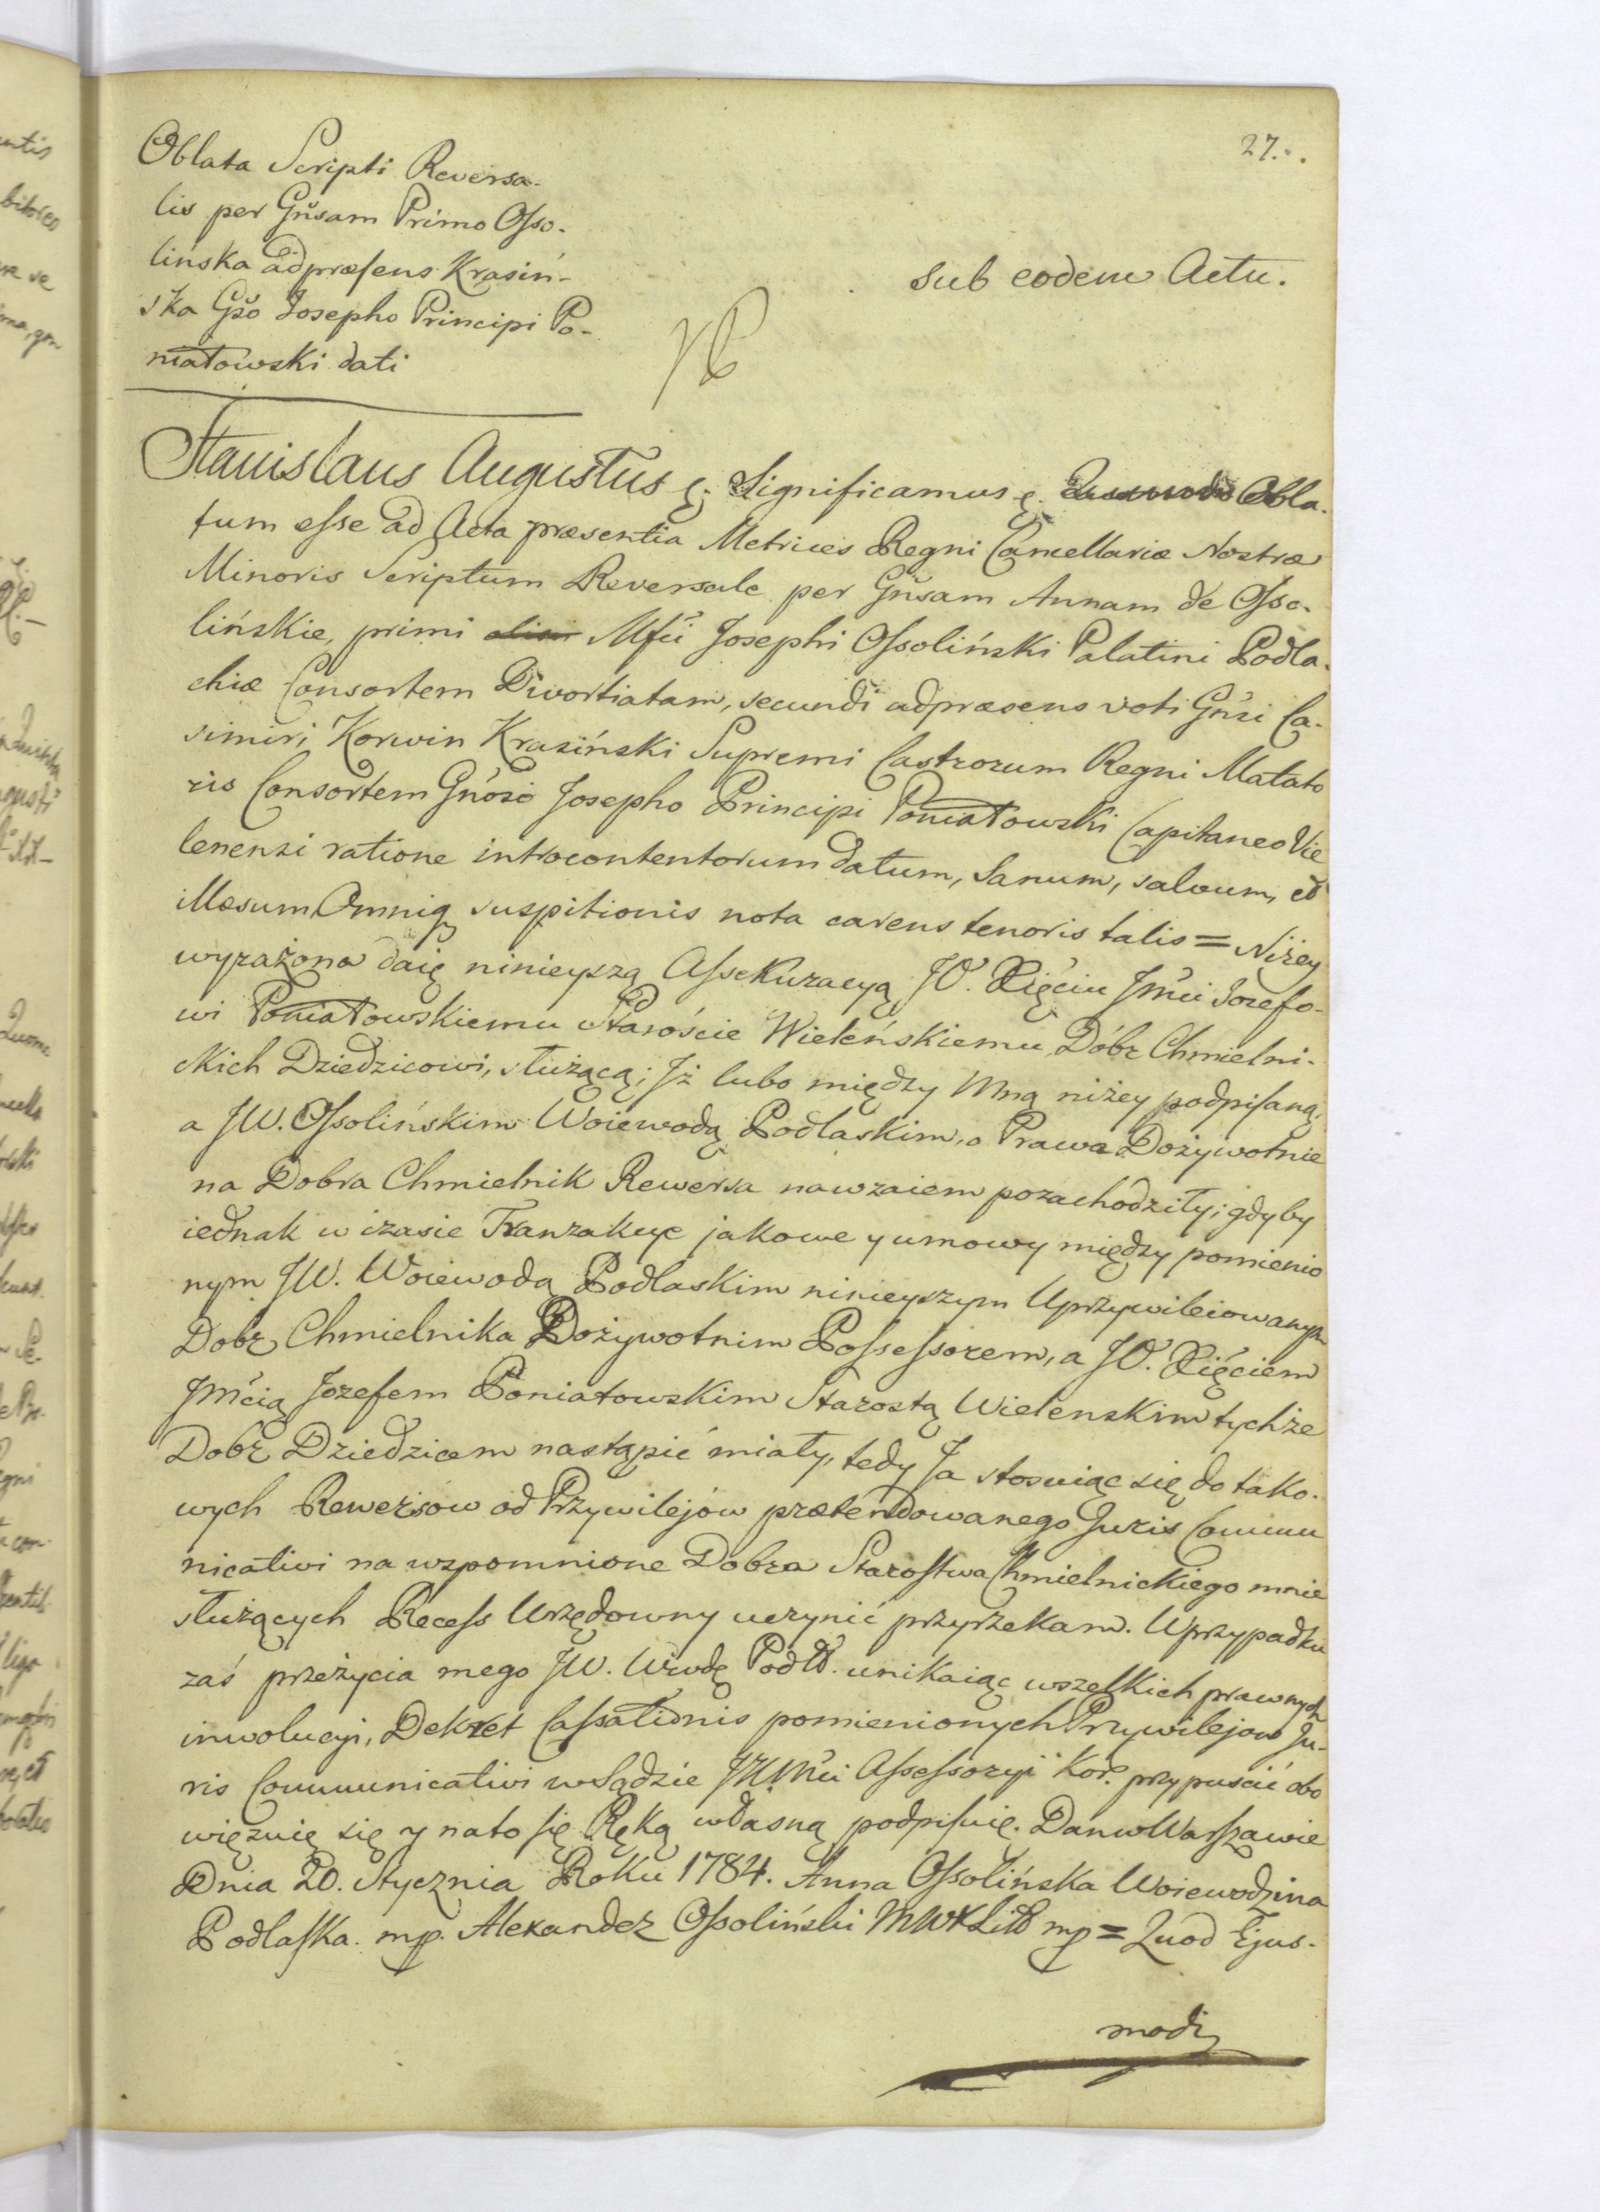 27.
Oblata Scripti Reversa-
lis per Gnsam Primo Osso-
lińska adpræsens Krasiń-
ska Gso Josepho Principi Po-
niatowski dati
sub eodem Actu.
Stanislaus Augustus &. Significamus &. Obla-
tum esse ad Acta præsentia Metrices Regni Cancellariæ Nostræ
Minoris Scriptum Reversale per Gnsam Annam de Osso-
lińskie, primi Mfci Josephi Ossoliński Palatini Podla-
chiæ Consortem Divortiatam, secundi adpræsens voti Gnsi Ca-
simiri Korwin Krasiński Supremi Castrorum Regni Matato
ris Consortem Gnoso Josepho Principi Poniatowski Capitaneo Vie
lenensi ratione introcontentorum datum, Sanum, salvum, et
illæsum Omniq suspitionis nota carens tenoris talis = Niżey
wyrażona daię ninieyszą Assekuracyą JO. Xięciu Jmci Jozefo-
wi Poniatowskiemu Staroście Wieleńskiemu Dóbr Chmielni-
ckich Dziedzicowi, służącą; Jż lubo między Mną niżey podpisaną,
a JW. Ossolińskim Woiewodą Podlaskim, o Prawa Dożywotnie
na Dobra Chmielnik Rewersa nawzaiem pozachodziły; gdyby
iednak w czasie Tranzakcye jakowe y umowy między pomienio
nym JW. Woiewodą Podlaskim ninieyszym Uprzywileiowanym
Dobr Chmielnika Dożywotnim Possessorem, a JO. Xięciem
Jmcią Jozefem Poniatowskim Starostą Wielenskim tychże
Dobr Dziedzicem nastąpić miały, tedy Ja stosuiąc się do tako-
wych Rewersow od Przywilejów prætendowanego Juris Commu
nicativi na wspomnione Dobra Starostwa Chmielnickiego mnie
służących Recess Urzędowny uczynić przyrzekam. W przypadku
zaś przeżycia mego JW. Wwdę Podl. unikaiąc wszelkich prawnych
inwolucyi, Dekret Cassationis pomienionych Przywilejow Ju-
ris Communicativi w Sądzie JKMci Assessoryi Kor. przypuścić obo
więzuię się y na to się Ręką własną podpisuię. Dan w Warszawie
Dnia 20. Stycznia Roku 1784. Anna Ossolińska Woiewodzina
Podlaska. mp. Alexander Ossoliński MWXLitt mp = Quod Ejus-
modi